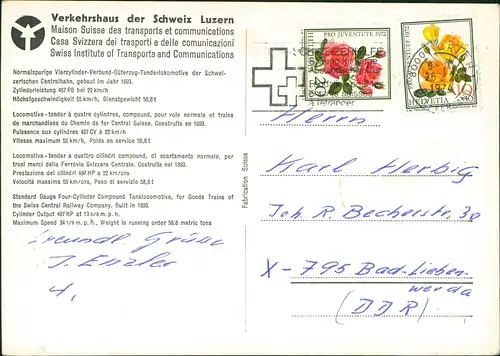 Verkehrshaus der Schweiz Luzern
Maison Suisse des transports et communications
Casa Svizzera dei trasporti e delle comunicazioni
Swiss Institute of Transports and Communications
Normalspurige Vierzylinder-Verbund-Güterzug-Tenderlokomotive der Schwei-
zerischen Centralbahn, gebaut im Jahr 1893.
Zylinderleistung 497 PS bei 22 km/h
Höchstgeschwindigkeit 55 km/h, Dienstgewicht 58,8 t
Locomotive-tender à quatre cylindres, compound, pour voie normale et trains
de marchandises du Chemin de fer Central Suisse. Construite en 1893.
Puissance aux cylindres 497 CV à 22 km/h
Vitesse maximum 55 km/h, Poids en service 58,8 t
Locomotiva-tender a quattro cilindri compound, di scartamento normale, per
treni merci della Ferrovia Svizzera Centrale. Costruita nel 1893.
Prestazione dei cilindri 497 HP a 22 km/ora
Velocità massima 55 km/ora, Peso di servizio 58,8 t
Standard Gauge Four-Cylinder Compound Tanklocomotive, for Goods Trains of
the Swiss Central Railway Company. Built in 1893.
Cylinder Output 497 HP at 13 ½ s m. p. h.
Maximum Speed 34 ⅛ s m. p. h., Weight in running order 58.8 metric tons
Freundl. Grüsse
Fabrication Suisse
PRO JUVENTUTE 1972
PRO JUVENTUTE 1972
HELVETIA
Herrn
Karl Herbig
Joh. R. Becherstr. 30
X-795 Bad-Lieben-
werda
(DDR)